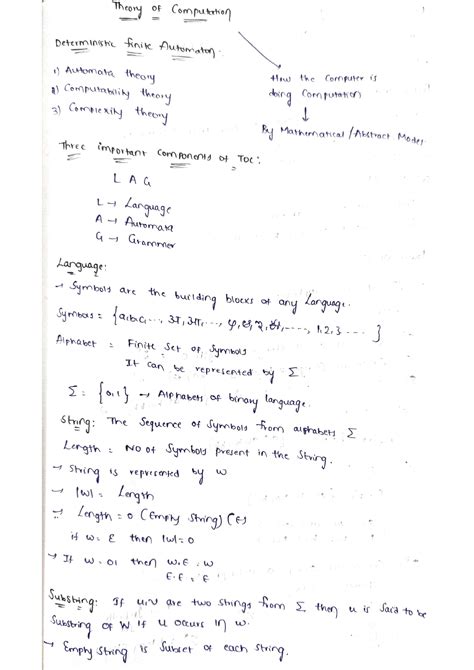 Theory of Computation
Deterministic Finite Automaton.
1) Automata theory
2) Computability theory
3) Complexity theory
How the Computer is
doing Computation
↓
By Mathematical / Abstract Model
Three important Components of TOC:
L A G
L → Language
A → Automata
G → Grammer
Language:
→ Symbols are the building blocks of any Language.
Symbols = { a,b,c, ..., अ, आ, ... 1,2,3 .... }
Alphabet = Finite Set of Symbols
It can be represented by Σ.
Σ = {0,1} → Alphabets of binary language.
String: The Sequence of Symbols from alphabets Σ
Length = No of Symbols present in the String.
→ String is represented by w
→ |w| = Length
→ Length = 0 (Empty String) (ε)
if w = ε then |w| = 0
→ If w = 01 then w.ε = w
ε.ε = ε
Substring: If u,v are two strings from Σ then u is Said to be
Substring of W if u occurs in w.
→ Empty String is Subset of each String.